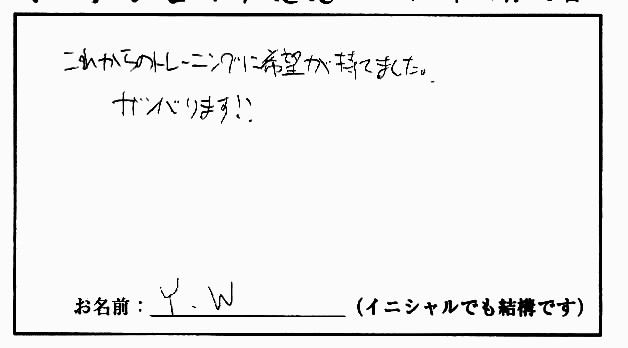 これからのトレーニングに希望が持てました。
ガンバります!!
お名前：Y.W（イニシャルでも結構です）